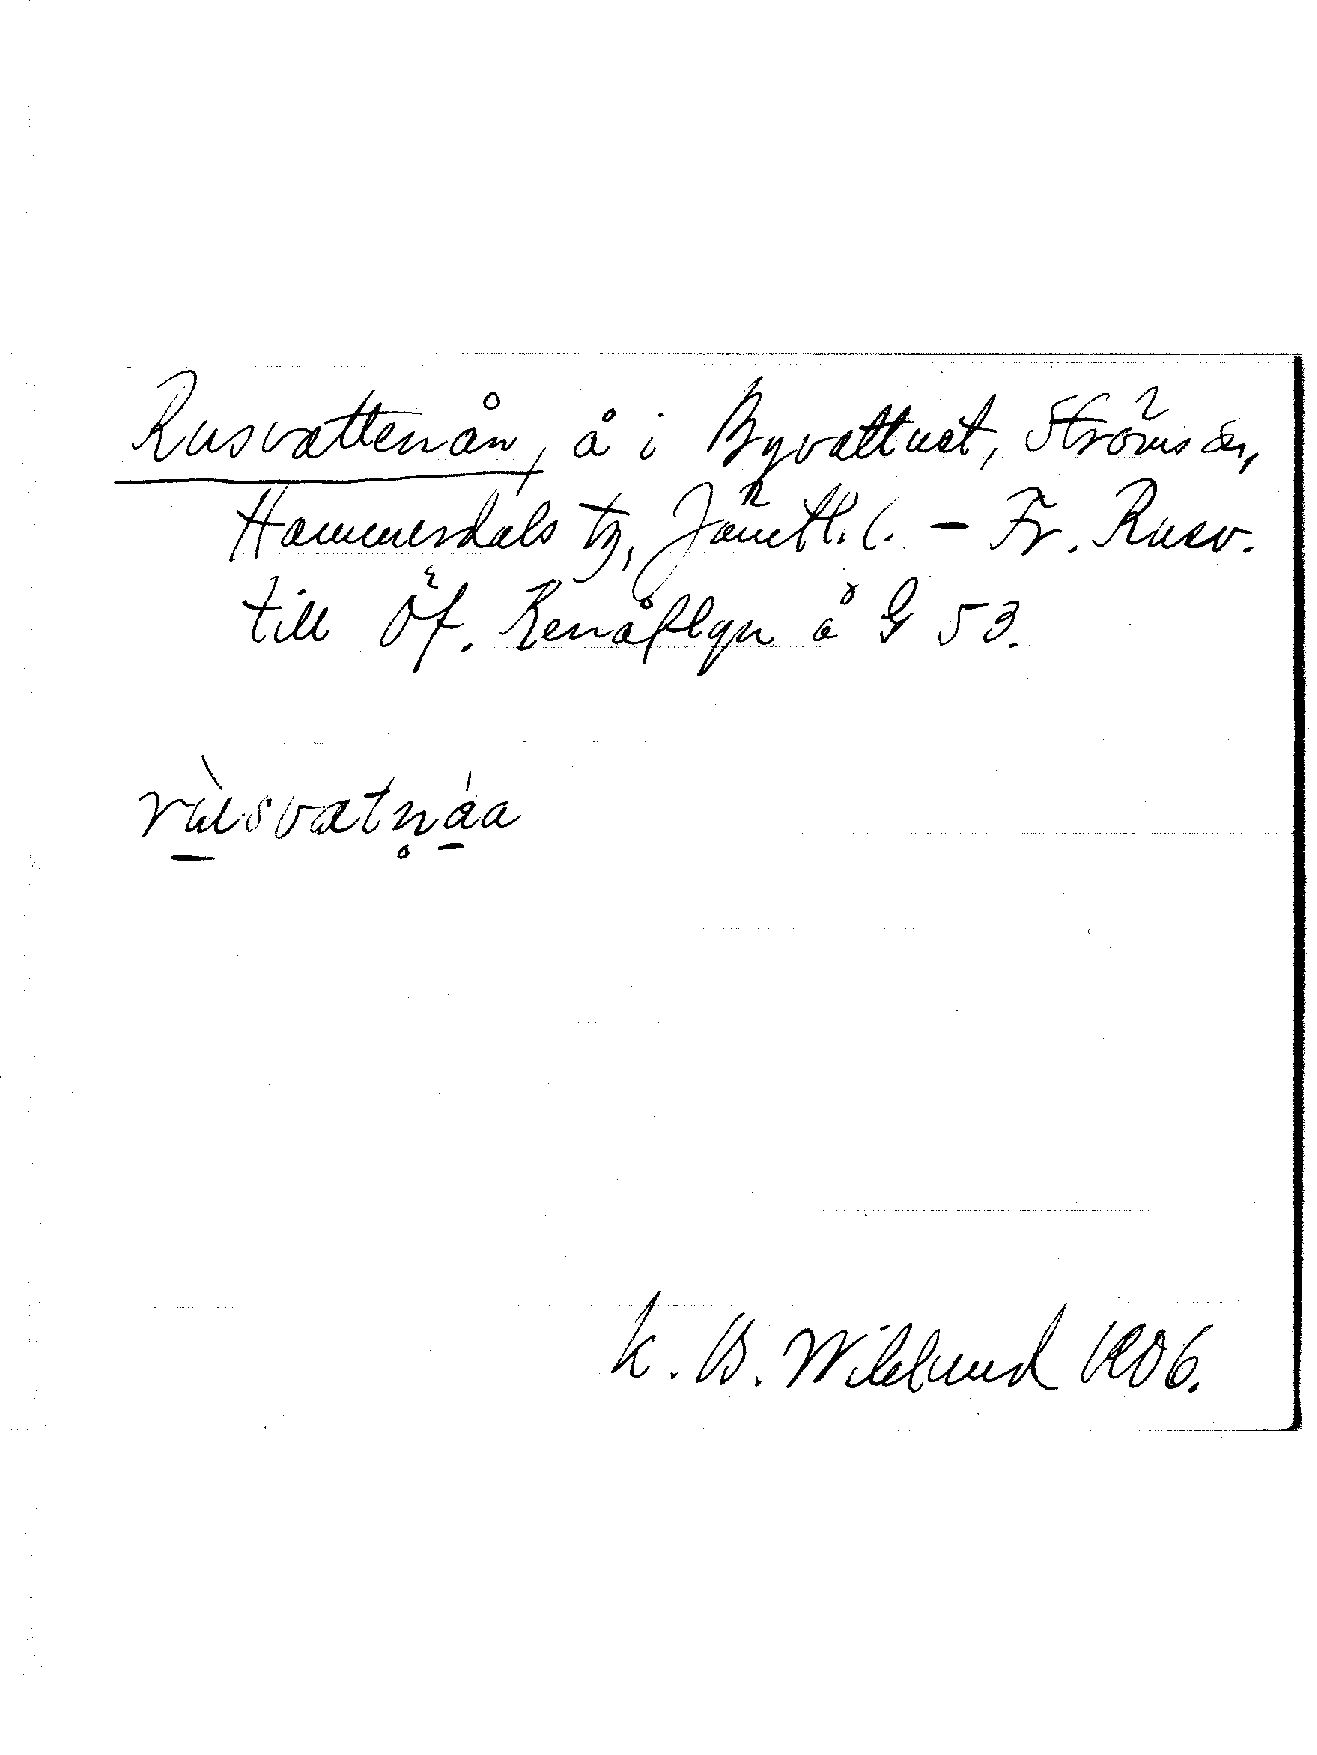 Rusvattenån, å i Byvattnet, Ströms sn,
Hammerdals tg, Jämtl. l. – Fr. Rusv.
till Öf. Renåflyn å G 53.
rùsvatn̥áa
K. B. Wiklund 1906.